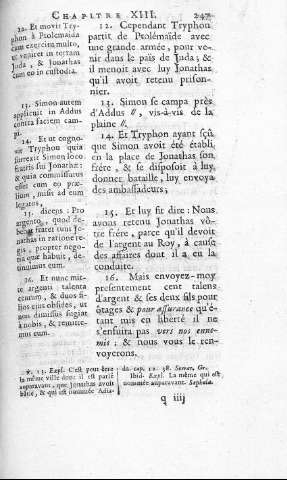 CHAPITRE XIII. 247
12. Et movit Try-
phon à Ptolemaida
cum exercitu multo,
ut veniret in terram
Juda, & Jonathas
cum eo in custodia.
13. Simon autem
applicuit in Addus
contra faciem cam-
pi.
14. Et ut cogno-
vit Tryphon quia
surrexit Simon loco
fratris sui Jonathæ:
& quia commissurus
esset cum eo præ-
lium, misit ad eum
legatos,
15. dicens: Pro
argento, quod de-
bebat frater tuus Jo-
nathas in ratione re-
gis, propter nego-
tia quæ habuit, de-
tinuimus eum.
16. Et nunc mit-
te argenti talenta
centum, & duos fi-
lios ejus obsides, ut
non dimissus fugiat
à nobis, & remitte-
mus eum.
12. Cependant Tryphon
partit de Ptolémaïde avec
une grande armée, pour ve-
nir dans le païs de Juda; &
il menoit avec luy Jonathas
qu'il avoit retenu prison-
nier.
13. Simon se campa près
d'Addus ∥, vis-à-vis de la
plaine ∥.
14. Et Tryphon ayant sçû
que Simon avoit été établi
en la place de Jonathas son
frére, & se disposoit à luy
donner bataille, luy envoya
des ambassadeurs,
15. Et luy fit dire: Nous
avons retenu Jonathas vô-
tre frére, parce qu'il devoit
de l'argent au Roy, à cause
des affaires dont il a eu la
conduite.
16. Mais envoyez-moy
presentement cent talens
d'argent & ses deux fils pour
ôtages & pour assurance qu'é-
tant mis en liberté il ne
s'enfuira pas vers nos enne-
mis; & nous vous le ren-
voyerons.
℣. 13. Expl. C'est peut être
la même ville dont il est parlé
auparavant, que Jonathas avoit
bâtie, & qui est nommée Adia-
da. cap. 12. 38. Seman, Gr.
Ibid. Expl. La même qui est
nommée auparavant. Sephela.
q iiij